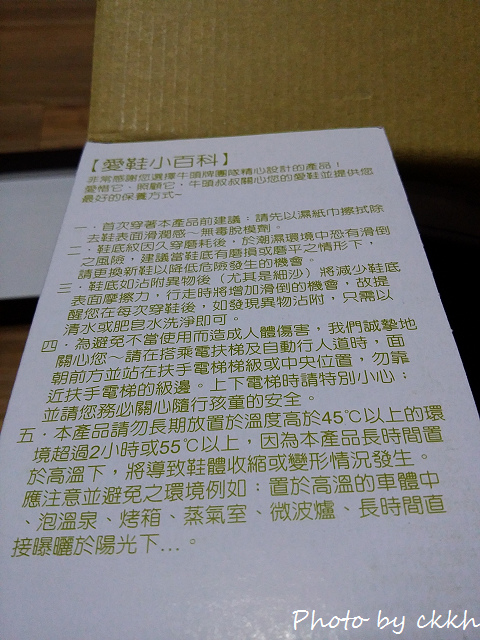 【愛鞋小百科】
非常感謝您選擇牛頭牌團隊精心設計的產品！
愛惜它、照顧它，牛頭叔叔關心您的愛鞋並提供您
最好的保養方式~
一．首次穿著本產品前建議：請先以濕紙巾擦拭除
去鞋表面滑潤感～無毒脫模劑。
二．鞋底紋因久穿磨耗後，於潮濕環境中恐有滑倒
之風險，建議當鞋底有磨損或磨平之情形下，
請更換新鞋以降低危險發生的機會。
三．鞋底如沾附異物後（尤其是細沙）將減少鞋底
表面摩擦力，行走時將增加滑倒的機會，故提
醒您在每次穿鞋後，如發現異物沾附，只需以
清水或肥皂水洗淨即可。
四．為避免不當使用而造成人體傷害，我們誠摯地
關心您～請在搭乘電扶梯及自動行人道時，面
朝前方並站在扶手電梯梯級或中央位置，勿靠
近扶手電梯的級邊。上下電梯時請特別小心；
並請您務必關心隨行孩童的安全。
五．本產品請勿長期放置於溫度高於45℃以上的環
境超過2小時或55℃以上，因為本產品長時間置
於高溫下，將導致鞋體收縮或變形情況發生。
應注意並避免之環境例如：置於高溫的車體中
、泡溫泉、烤箱、蒸氣室、微波爐、長時間直
接曝曬於陽光下...。
Photo by ckkh